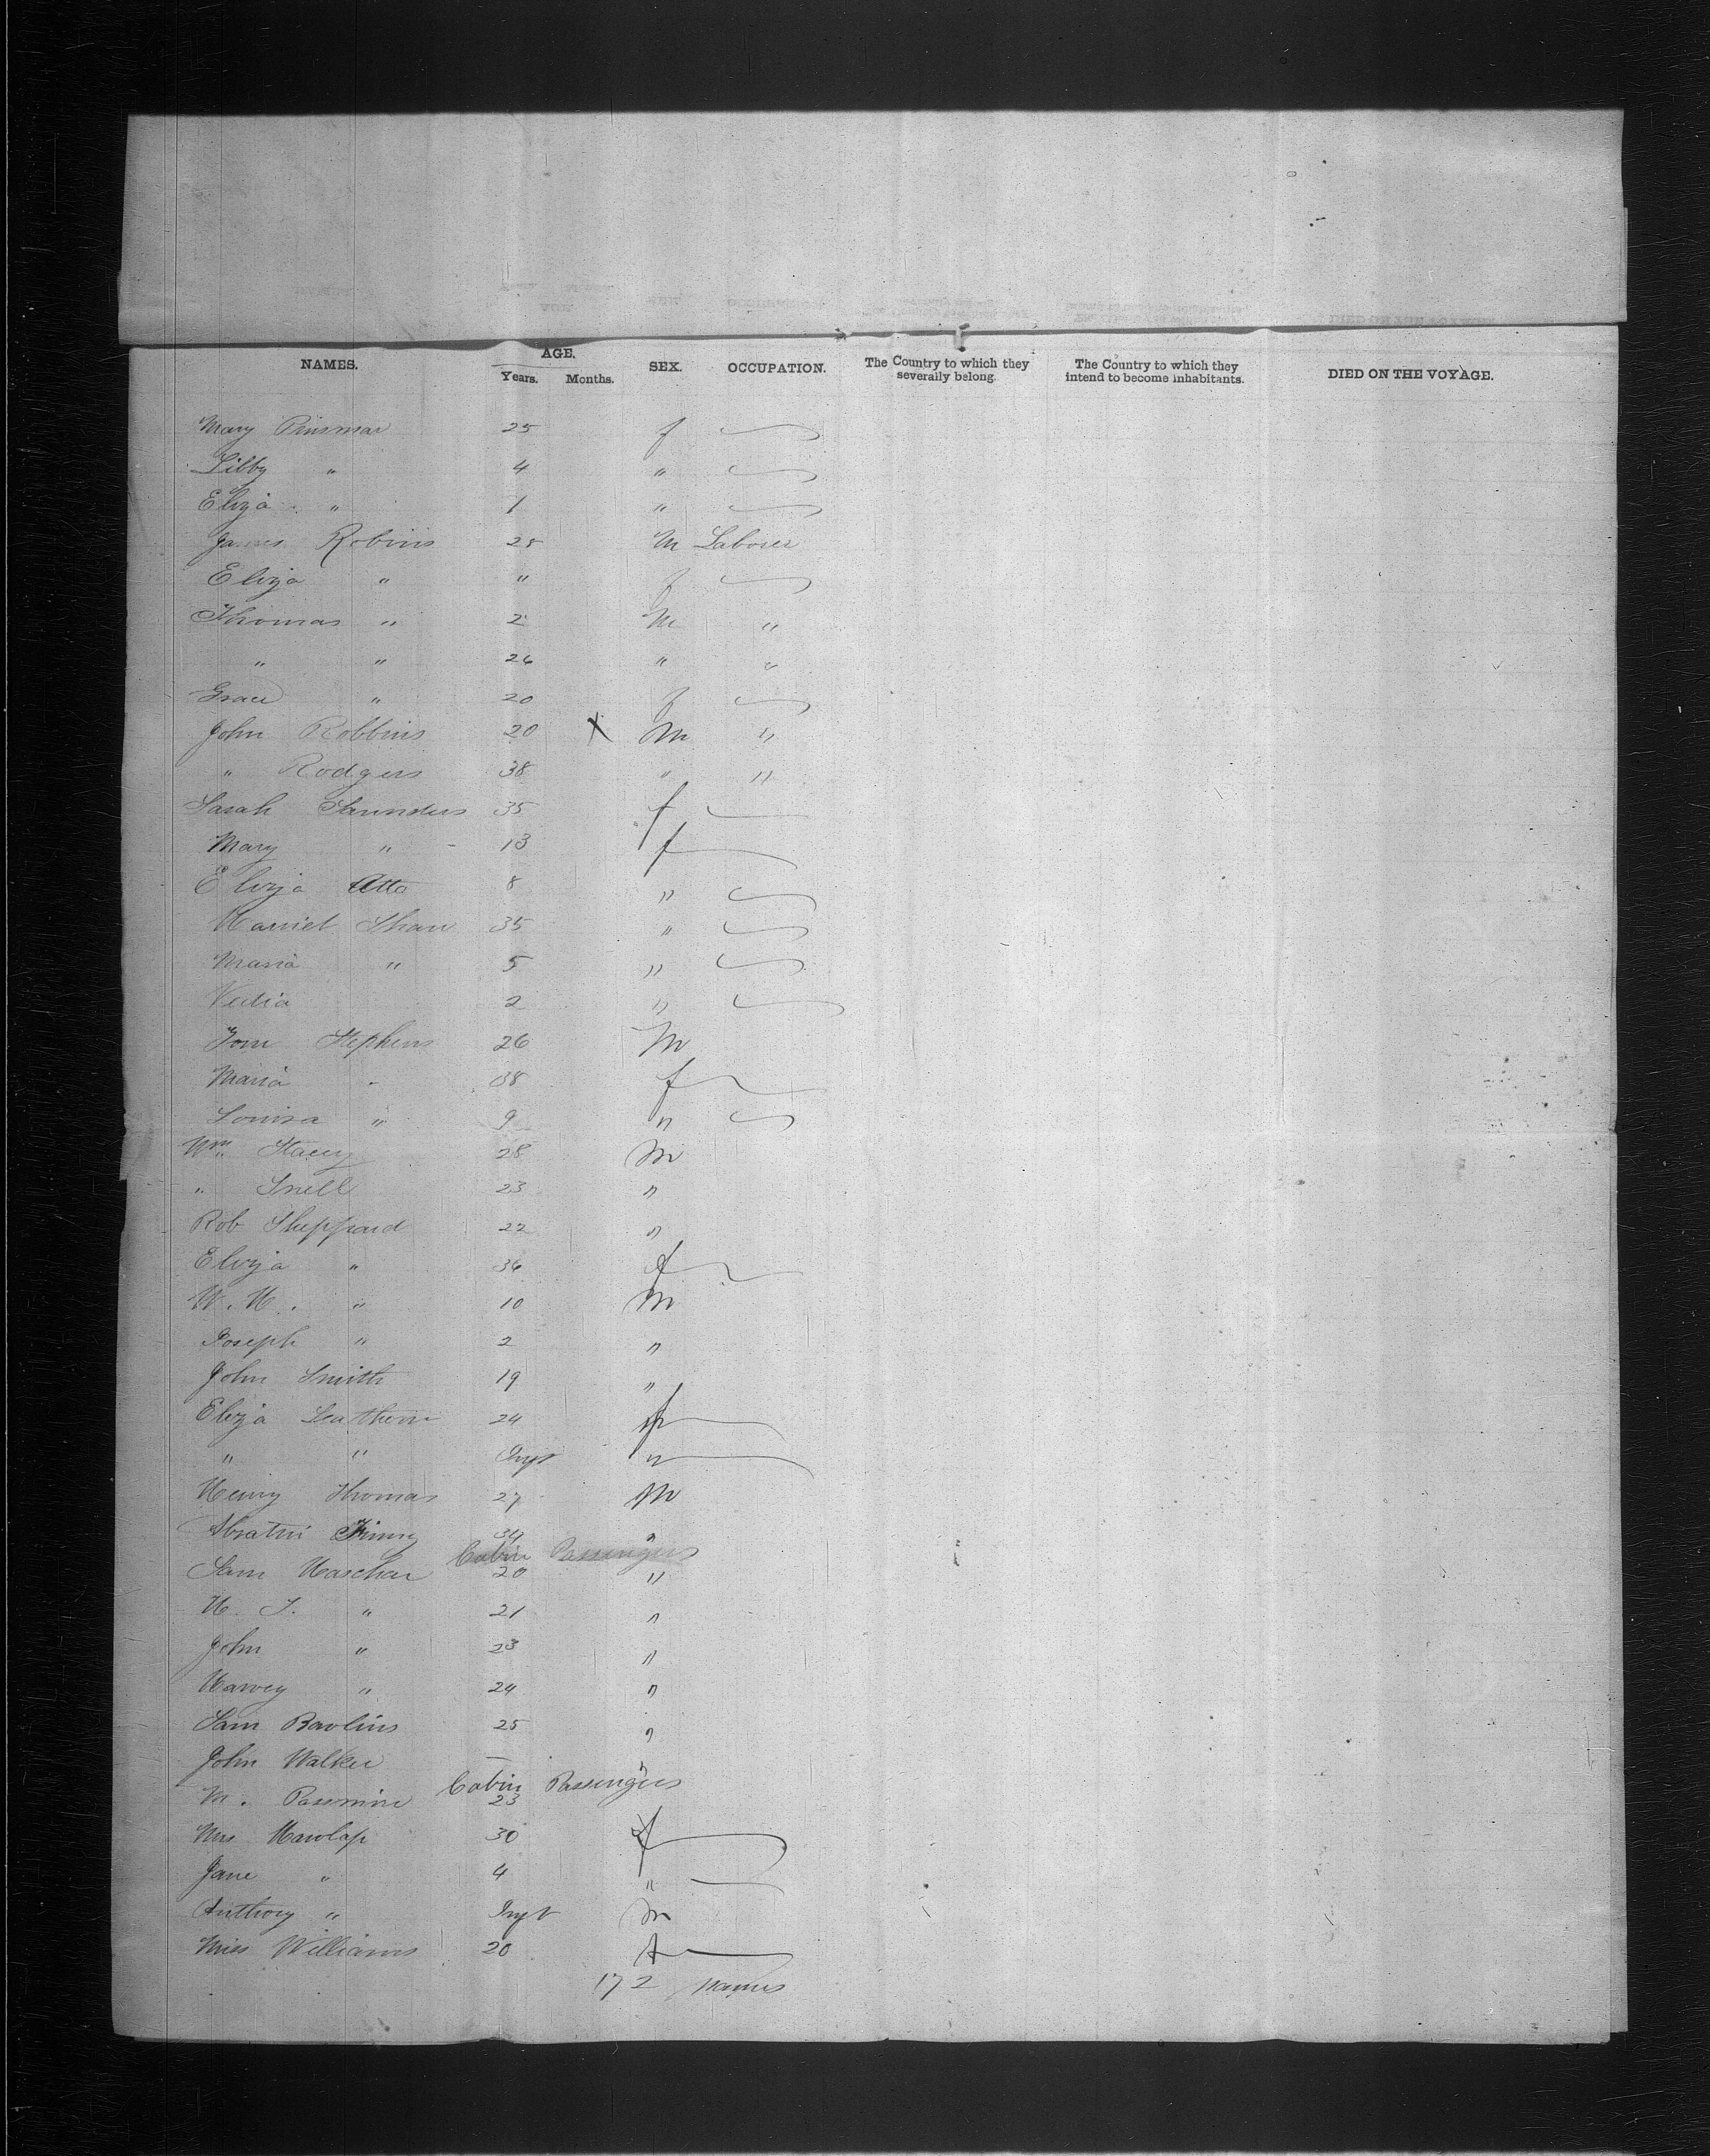 NAMES. AGE. SEX. OCCUPATION. The Country to which they severally belong. The Country to which they intend to become inhabitants. DIED ON THE VOYAGE.
Years. Months.
Mary 25 f
Libby " 4 "
Eliza " 1 "
James Robins 28 M Laborer
Eliza " " f
Thomas " 2 M "
" " 26 " "
Grace " 20 f
John Robbins 20 X M "
" Rodgers 38 " "
Sarah Saunders 35 f
Mary " 13 f
Eliza 8 "
Harriet Shaw 35 "
Maria " 5 "
2 "
Tom Stephens 26 M
Maria " 38 f
Louisa " 9 "
Wm. Stacey 28 M
" Snell 23 "
Rob Sheppard 22 "
Eliza " 36 f
W. H. " 10 M
Joseph " 2 "
John Smith 19 "
Eliza Leathern 24 f
" " Inft "
Henry Thomas 27 M
34 "
Cabin Passengers
Sam 20 "
H. J. " 21 "
John " 23 "
Harvey " 24 "
Sam 25 "
John Walker — "
Cabin Passengers
M. 23
Mrs 30 f
Jane " 4 "
Anthony " Inft M
Miss Williams 20 f
172 names